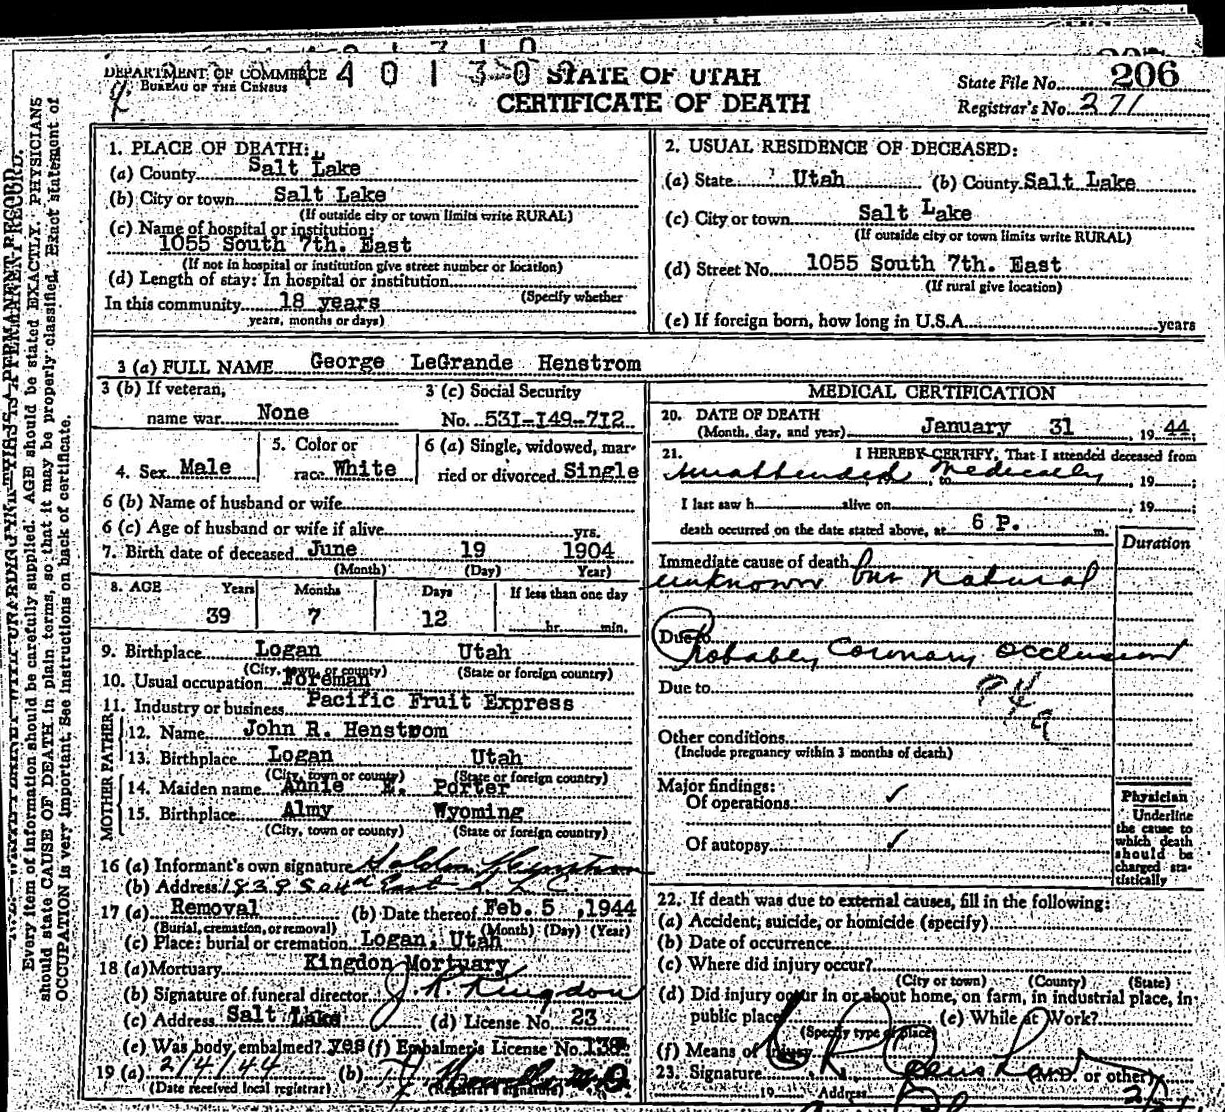 DEPARTMENT OF COMMERCE
BUREAU OF THE CENSUS
STATE OF UTAH
CERTIFICATE OF DEATH
State File No. 206
Registrar's No. 271
Every item of information should be carefully supplied. AGE should be stated EXACTLY. PHYSICIANS
should state CAUSE OF DEATH in plain terms, so that it may be properly classified. Exact statement of
OCCUPATION is very important. See instructions on back of certificate.
1. PLACE OF DEATH:
(a) County Salt Lake
(b) City or town Salt Lake
(If outside city or town limits write RURAL)
(c) Name of hospital or institution:
1055 South 7th. East
(If not in hospital or institution give street number or location)
(d) Length of stay: In hospital or institution
(Specify whether
In this community 18 years
years, months or days)
2. USUAL RESIDENCE OF DECEASED:
(a) State Utah (b) County Salt Lake
(c) City or town Salt Lake
(If outside city or town limits write RURAL)
(d) Street No. 1055 South 7th. East
(If rural give location)
(e) If foreign born, how long in U.S.A. years
3 (a) FULL NAME George LeGrande Henstrom
3 (b) If veteran,
name war None
3 (c) Social Security
No. 531-149-712
4. Sex Male
5. Color or
race White
6 (a) Single, widowed, mar-
ried or divorced Single
6 (b) Name of husband or wife
6 (c) Age of husband or wife if alive yrs.
7. Birth date of deceased June 19 1904
(Month) (Day) Year)
8. AGE Years Months Days If less than one day
39 7 12 hr. min.
9. Birthplace Logan Utah
(City, town, or county) (State or foreign country)
10. Usual occupation Foreman
11. Industry or business Pacific Fruit Express
FATHER
12. Name John R. Henstrom
13. Birthplace Logan Utah
(City, town or county) (State or foreign country)
MOTHER
14. Maiden name Annie E. Porter
15. Birthplace Almy Wyoming
(City, town or county) (State or foreign country)
16 (a) Informant's own signature
(b) Address
17 (a) Removal (b) Date thereof Feb. 5 ,1944
(Burial, cremation, or removal) (Month) (Day) (Year)
(c) Place: burial or cremation Logan, Utah
18 (a) Mortuary Kingdon Mortuary
(b) Signature of funeral director J. R. Kingdon
(c) Address Salt Lake (d) License No. 23
(e) Was body embalmed? yes (f) Embalmer's License No.
19 (a) 2/4/44 (b)
(Date received local registrar) (Registrar's signature)
MEDICAL CERTIFICATION
20. DATE OF DEATH
(Month, day, and year) January 31, 19 44
21. I HEREBY CERTIFY, That I attended deceased from
unattended, to medically, 19 ;
I last saw h alive on , 19 ;
death occurred on the date stated above, at 6 P. m.
Duration
Immediate cause of death
unknown but natural
Due to
Probably Coronary Occlusion
Due to
94a
Other conditions
(Include pregnancy within 3 months of death)
Major findings:
Of operations ✓
Of autopsy ✓
Physician
Underline
the cause to
which death
should be
charged sta-
tistically
22. If death was due to external causes, fill in the following:
(a) Accident, suicide, or homicide (specify)
(b) Date of occurrence
(c) Where did injury occur?
(City or town) (County) (State)
(d) Did injury occur in or about home, on farm, in industrial place, in
public place (e) While at Work?
(Specify type of place)
(f) Means of Injury
23. Signature (M.D. or other)
19 Address